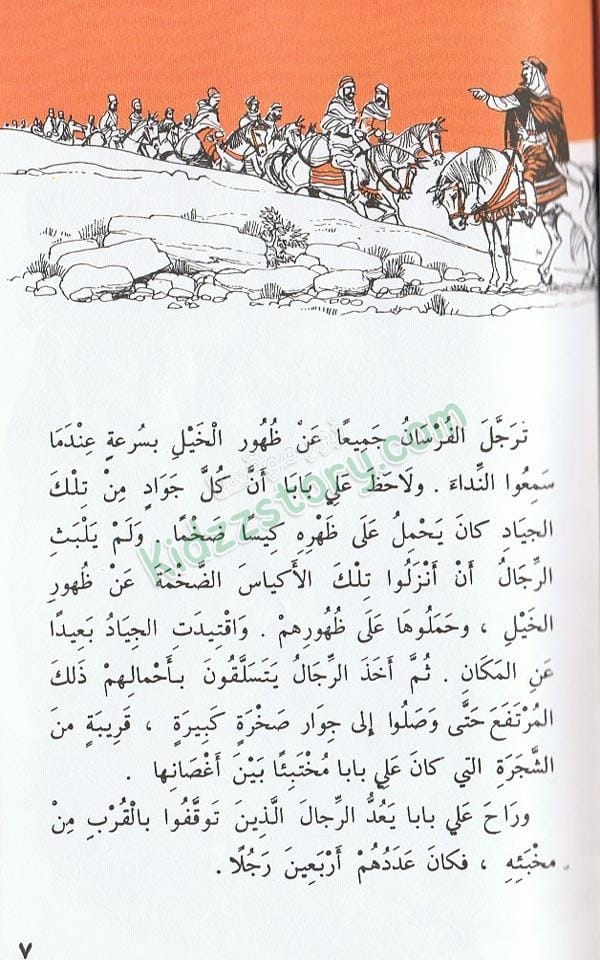 تَرَجَّلَ الفُرْسَانُ جَمِيعًا عَنْ ظُهُورِ الْخَيْلِ بسُرعَةٍ عِنْدَمَا
سَمِعُوا النِّداءَ . ولَاحَظَ عَلِي بَابَا أَنَّ كُلَّ جَوَادٍ مِنْ تِلْكَ
الجِيَادِ كانَ يَحْمِلُ عَلَى ظَهْرِهِ كِيسًا ضَخْمًا . ولَمْ يَلْبَثِ
الرِّجَالُ أَنْ أَنْزَلُوا تِلْكَ الأَكْيَاسَ الضَّخْمَةَ عَنْ ظُهورِ
الخَيْلِ ، وحَمَلُوهَا عَلَى ظُهُورِهِمْ . وَاقْتِيدَتِ الجِيَادُ بَعِيدًا
عَنِ المَكَانِ . ثُمَّ أَخَذَ الرِّجالُ يَتَسَلَّقُونَ بِأَحْمالِهِمْ ذَلكَ
المُرْتَفَعَ حَتَّى وَصَلُوا إلى جِوَارِ صَخْرَةٍ كَبِيرَةٍ ، قَرِيبَةٍ منَ
الشَّجَرَةِ التي كانَ عَلِي بابا مُخْتَبِئًا بَيْنَ أَغْصَانِها .
ورَاحَ عَلي بابا يَعُدُّ الرِّجالَ الَّذِينَ تَوقَّفُوا بالْقُرْبِ مِنْ
مَخْبَئِهِ ، فكانَ عَدَدُهُمْ أَرْبَعِينَ رَجُلًا .
٧
kidzzstory.com